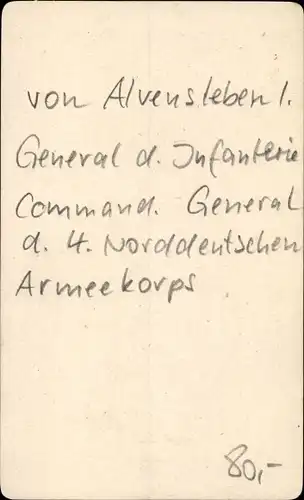 von Alvensleben I.
General d. Infanterie
Command. General
d. 4. Norddeutschen
Armeekorps
80,-